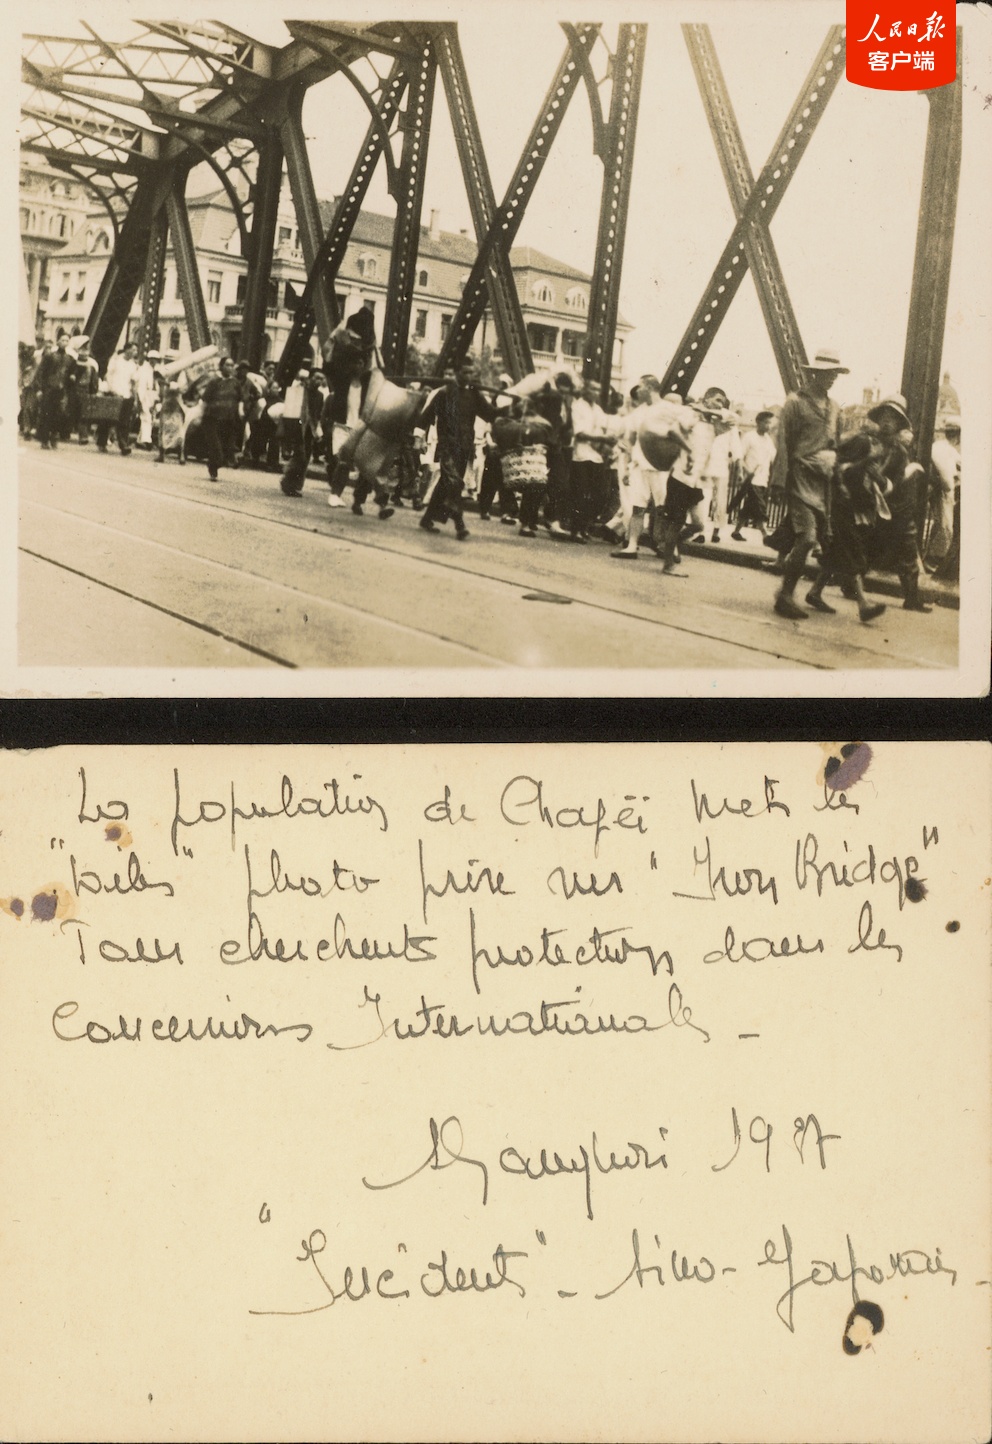 人民日报
客户端
La population de Chapeï met les
"voiles" photo prise sur "Iron Bridge"
Tous cherchent protection dans les
Concessions Internationales -
Shanghai 1937
"Incident" - Sino-Japonais -